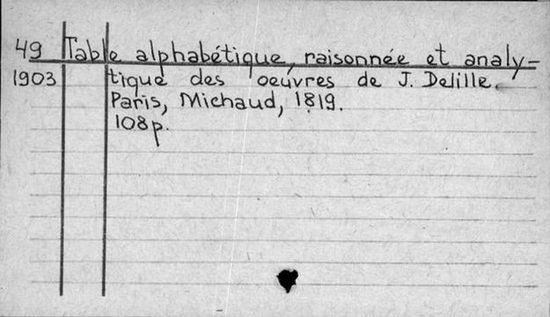 49 Table alphabétique, raisonnée et analy-
1903 tique des oeuvres de J. Delille.
Paris, Michaud, 1819.
108p.